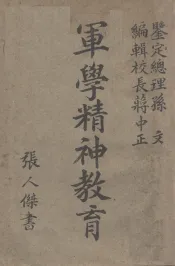 鑒定總理孫文
編輯校長蔣中正
軍學精神教育
張人傑書